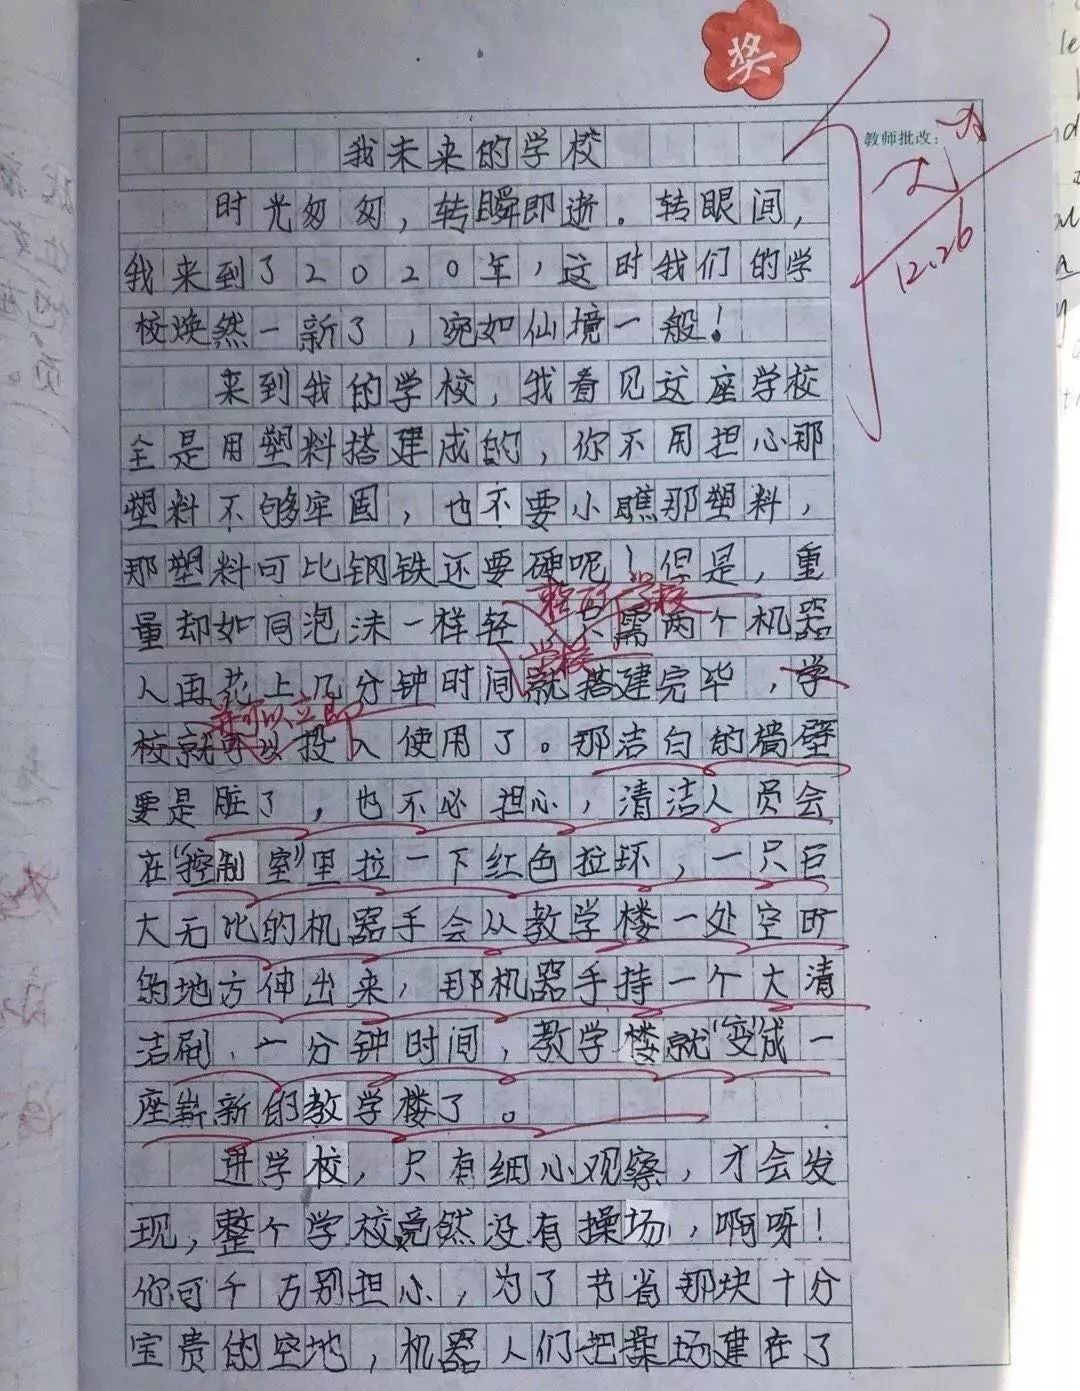 奖
教师批改：
12.26
我未来的学校
时光匆匆，转瞬即逝。转眼间，
我来到了2020年，这时我们的学
校焕然一新了，宛如仙境一般！
来到我的学校，我看见这座学校
全是用塑料搭建成的，你不用担心那
塑料不够牢固，也不要小瞧那塑料，
那塑料可比钢铁还要硬呢！但是，重
整所学校
量却如同泡沫一样轻，只需两个机器
学校
人再花上几分钟时间就搭建完毕，学
并可以立即
校就可以投入使用了。那洁白的墙壁
要是脏了，也不必担心，清洁人员会
在“控制室”里拉一下红色拉环，一只巨
大无比的机器手会从教学楼一处空旷
的地方伸出来，那机器手持一个大清
洁刷，一分钟时间，教学楼就“变”成一
座崭新的教学楼了。
进学校，只有细心观察，才会发
现，整个学校竟然没有操场，啊呀！
你可千万别担心，为了节省那块十分
宝贵的空地，机器人们把操场建在了